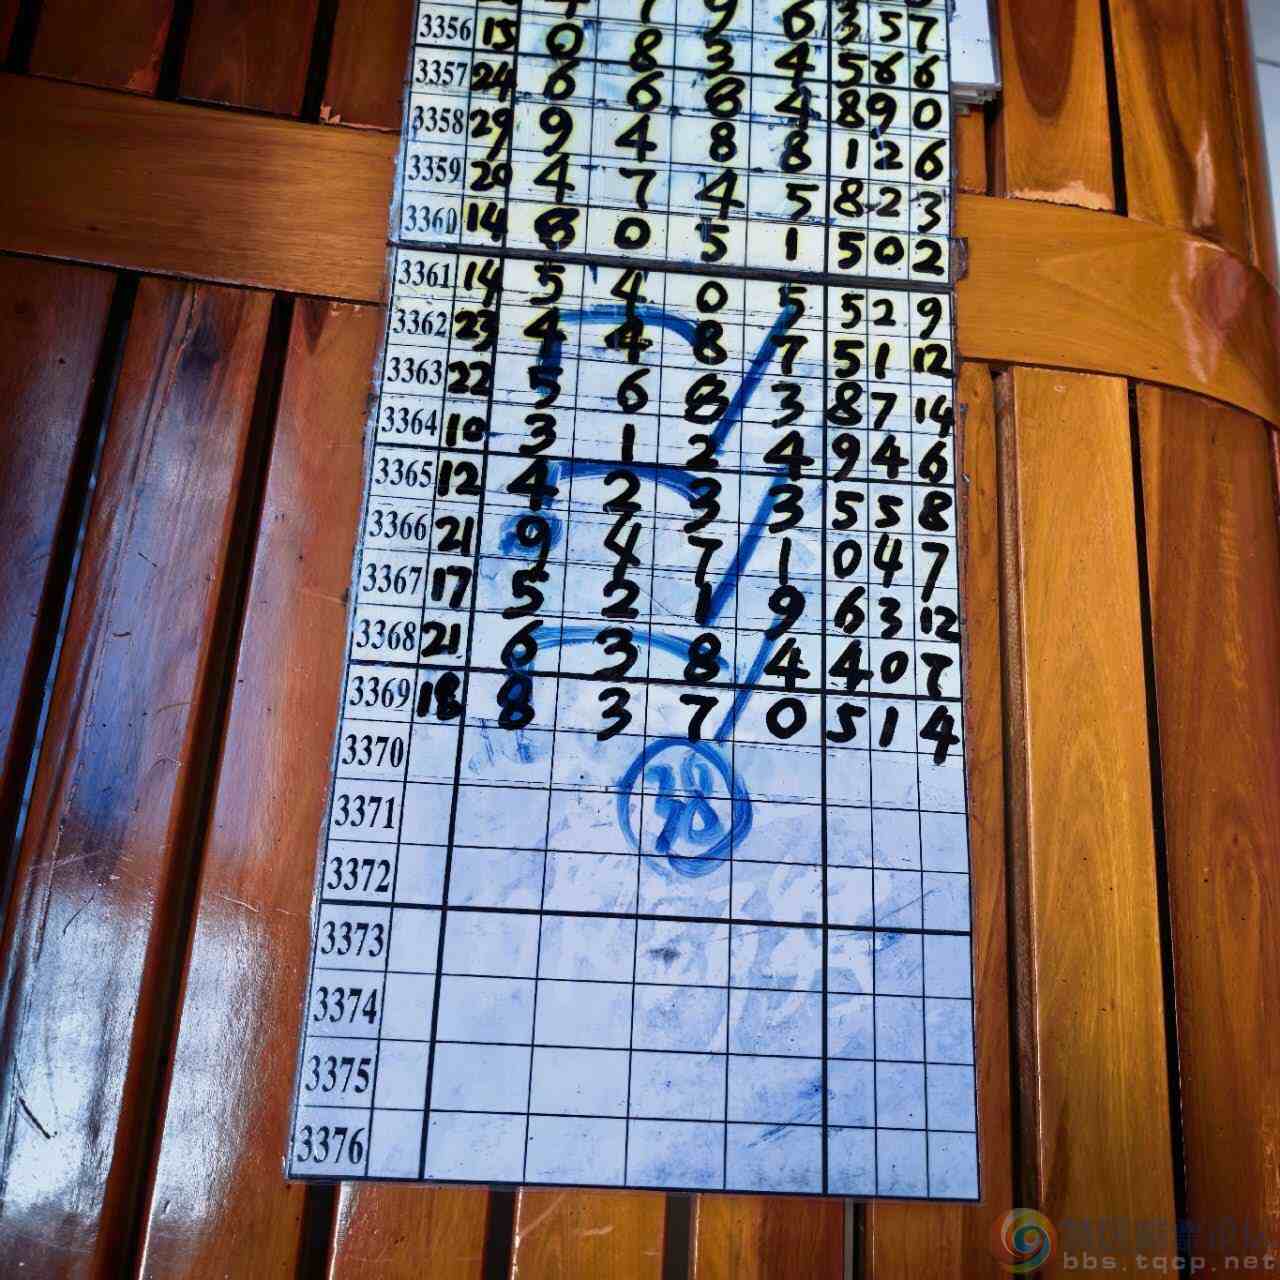 7 9 6 3 5 7
3356 15 0 8 3 4 5 6 6
3357 24 6 6 8 4 8 9 0
3358 29 9 4 8 8 1 2 6
3359 20 4 7 4 5 8 2 3
3360 14 8 0 5 1 5 0 2
3361 14 5 4 0 5 5 2 9
3362 23 4 4 8 7 5 1 12
3363 22 5 6 8 3 8 7 14
3364 10 3 1 2 4 9 4 6
3365 12 4 2 3 3 5 5 8
3366 21 9 4 7 1 0 4 7
3367 17 5 2 1 9 6 3 12
3368 21 6 3 8 4 4 0 7
3369 18 8 3 7 0 5 1 4
3370
38
3371
3372
3373
3374
3375
3376
bbs.tqcp.net